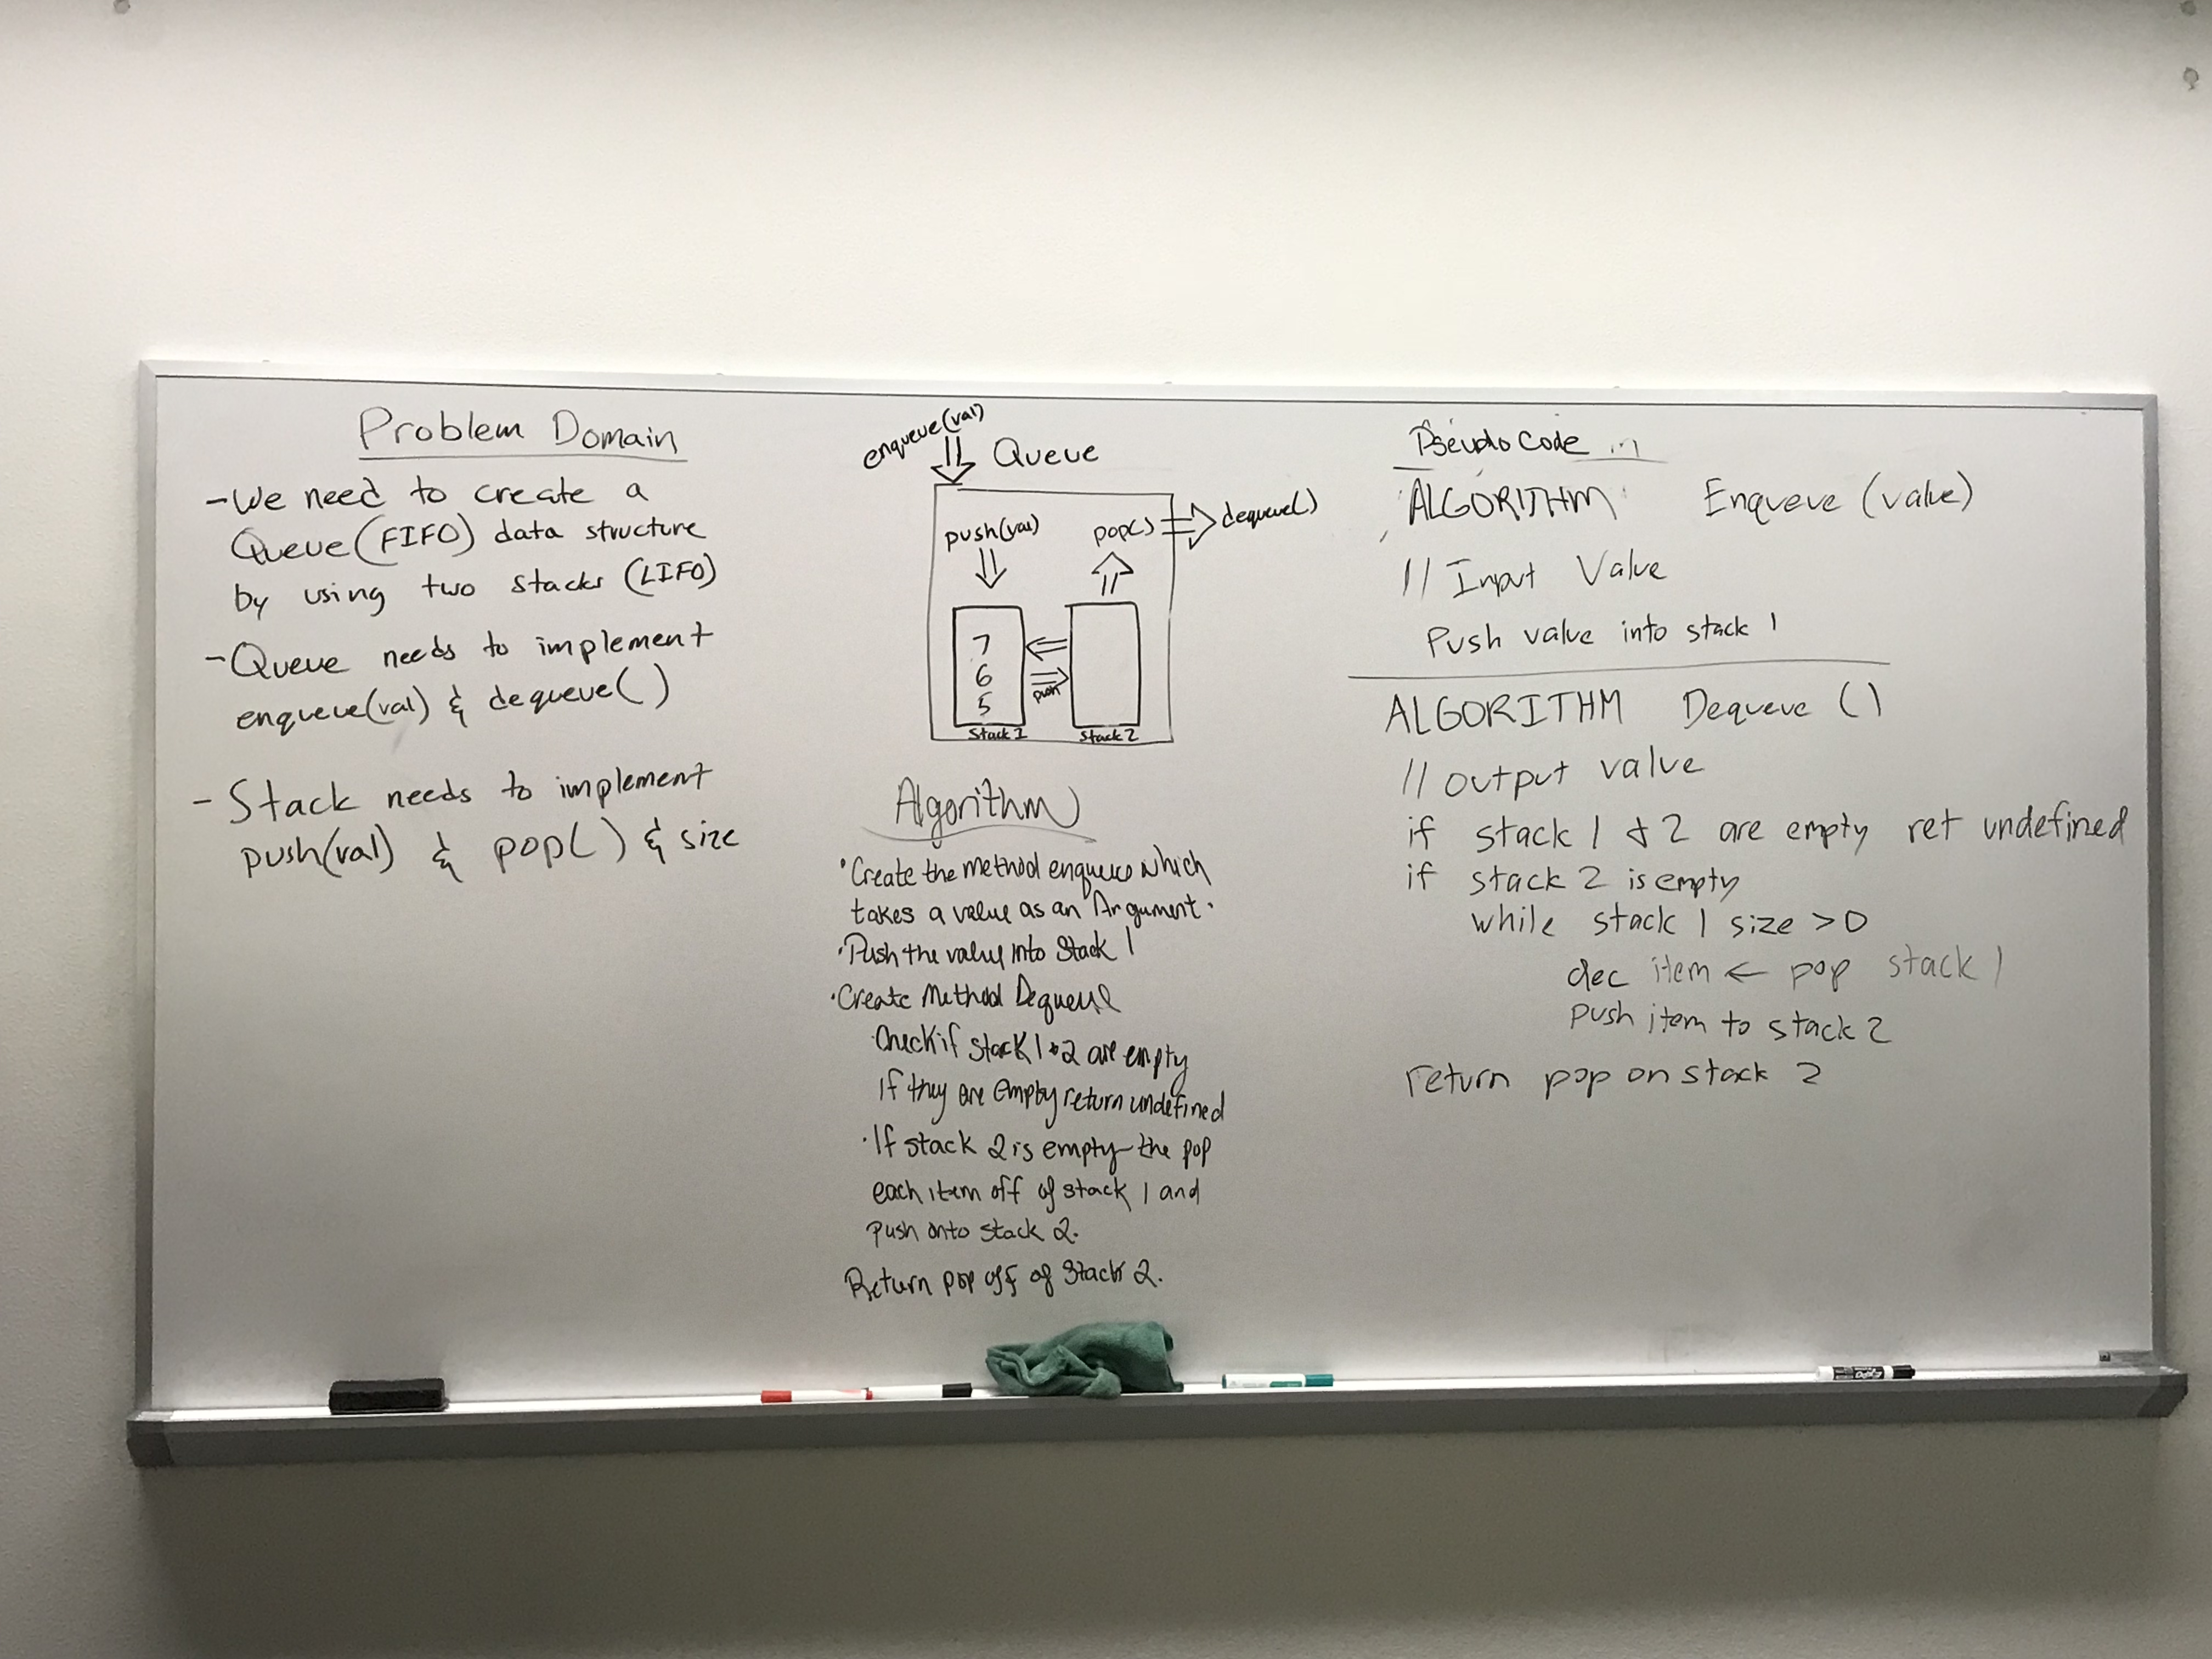 Problem Domain
- We need to create a
Queue (FIFO) data structure
by using two stacks (LIFO)
- Queue needs to implement
enqueue(val) & dequeue( )
- Stack needs to implement
push(val) & pop( ) & size
enqueue(val)
Queue
push(val) pop() dequeue()
7
6
5
push
Stack 1 Stack 2
Algorithm
• Create the method enqueue which
takes a value as an Argument.
• Push the value into Stack 1
• Create Method Dequeue
• Check if stack 1 & 2 are empty
If they are empty return undefined
• If stack 2 is empty the pop
each item off of stack 1 and
push onto stack 2.
Return pop off of Stack 2.
Pseudo Code
ALGORITHM Enqueue (value)
// Input Value
Push value into stack 1
ALGORITHM Dequeue ()
// output value
if stack 1 & 2 are empty ret undefined
if stack 2 is empty
while stack 1 size > 0
dec item ← pop stack 1
push item to stack 2
return pop on stack 2